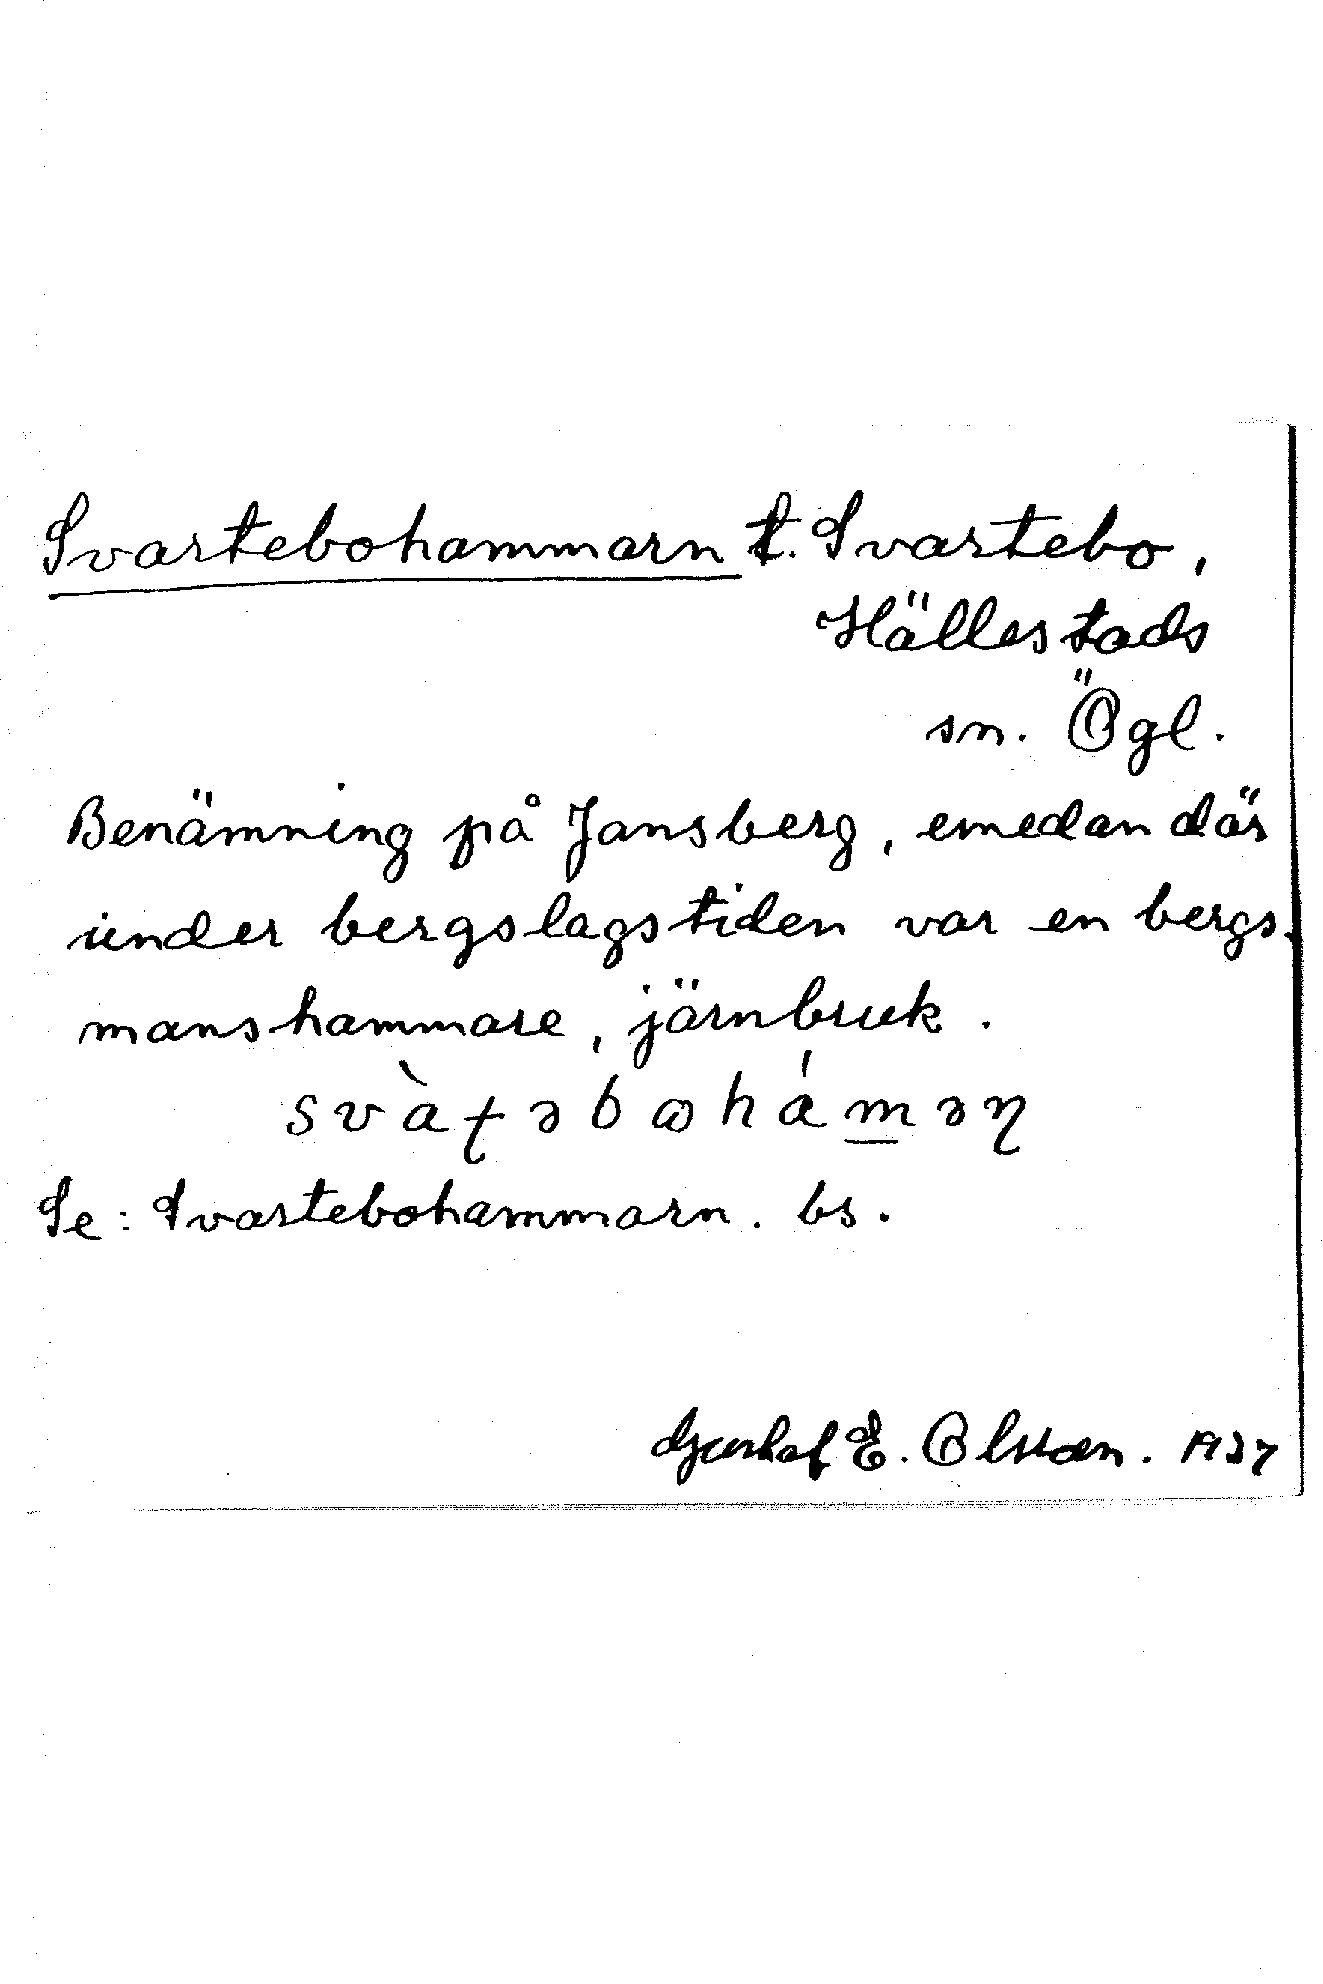 Svartebohammarn t. Svartebo,
Hällestads
sn. Ögl.
Benämning på Jansberg, emedan där
under bergslagstiden var en bergs-
manshammare, järnbruk.
svàʈəbɷhámə̱ɳ
Se: Svartebohammarn. bs.
E. Olsson. 1937